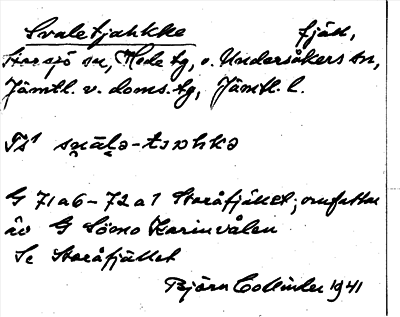 Svaletjahkke fjäll,
Storsjö sn, Hede tg, o. Undersåkers sn,
Jämtl. v. doms. tg, Jämtl. l.
su̯ālə-tjɒhkə
G 71 a 6 - 72 a 1 Storåfjället; omfattar
äv G Sömo Karinvålen
Se Storåfjället
Björn Collinder 1941